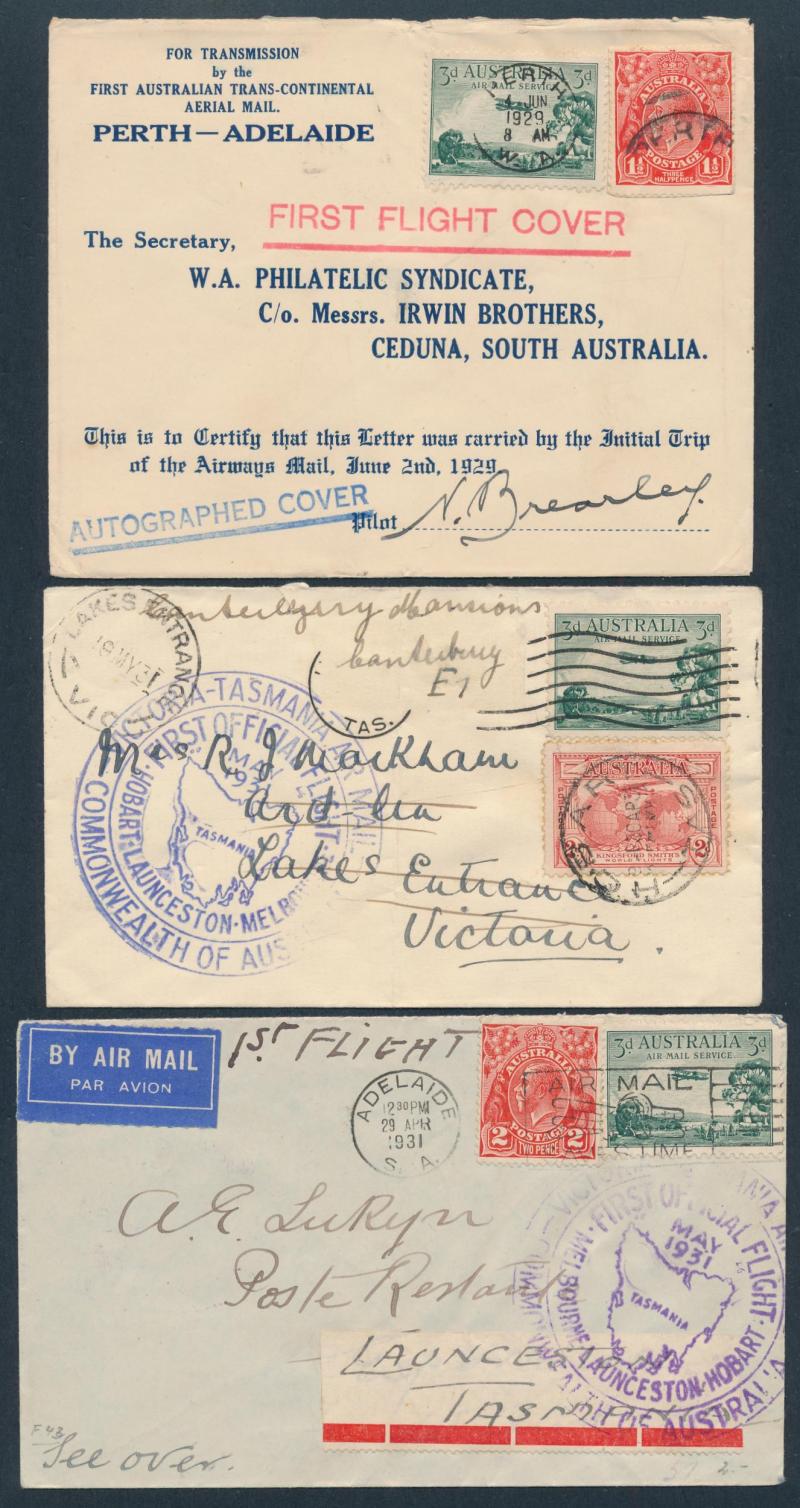 FOR TRANSMISSION
by the
FIRST AUSTRALIAN TRANS-CONTINENTAL
AERIAL MAIL.
PERTH—ADELAIDE
3d AUSTRALIA 3d
AIR MAIL SERVICE
PERTH
4 JUN
1929
8 AM
W.A.
AUSTRALIA
PERTH
1½ 1½
POSTAGE
THREE
HALFPENCE
FIRST FLIGHT COVER
The Secretary,
W.A. PHILATELIC SYNDICATE,
C/o. Messrs. IRWIN BROTHERS,
CEDUNA, SOUTH AUSTRALIA.
This is to Certify that this Letter was carried by the Initial Trip
of the Airways Mail, June 2nd, 1929.
AUTOGRAPHED COVER
Pilot N. Brearley.
LAKES ENTRANCE
19 MY 31
VIC
Mansions
Canterbury
E7
TAS.
3d AUSTRALIA 3d
AIR MAIL SERVICE
VICTORIA-TASMANIA AIR MAIL
FIRST OFFICIAL FLIGHT
MAY
1931
HOBART-LAUNCESTON-MELBOU
TASMANIA
COMMONWEALTH OF AUS
AUSTRALIA
POSTAGE
2d 2d
KINGSFORD SMITH'S
WORLD FLIGHTS
R J Markham
Ard-lea
Lakes Entrance
Victoria.
BY AIR MAIL
PAR AVION
1ST FLIGHT
ADELAIDE
12 30 PM
29 APR
1931
S. A.
AUSTRALIA
2 POSTAGE 2
TWO PENCE
3d AUSTRALIA 3d
AIR MAIL SERVICE
AIR MAIL
TIME
A.E. Lukyn
Poste Restante
LAUNCESTON
TASMANIA
FIRST OFFICIAL FLIGHT
MAY
1931
TASMANIA
MELBOURNE-LAUNCESTON-HOBART
OF AUSTRALIA
F43
See over.